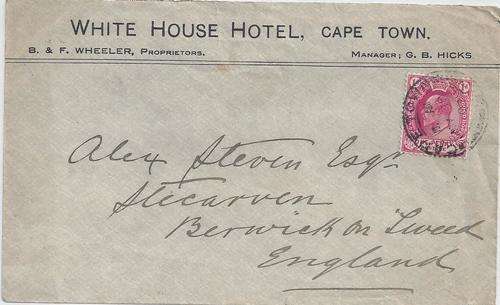 WHITE HOUSE HOTEL, CAPE TOWN.
B. & F. WHEELER, PROPRIETORS. MANAGER; G. B. HICKS
Alex Steven Esqr
Stecarven
Berwick on Tweed
England